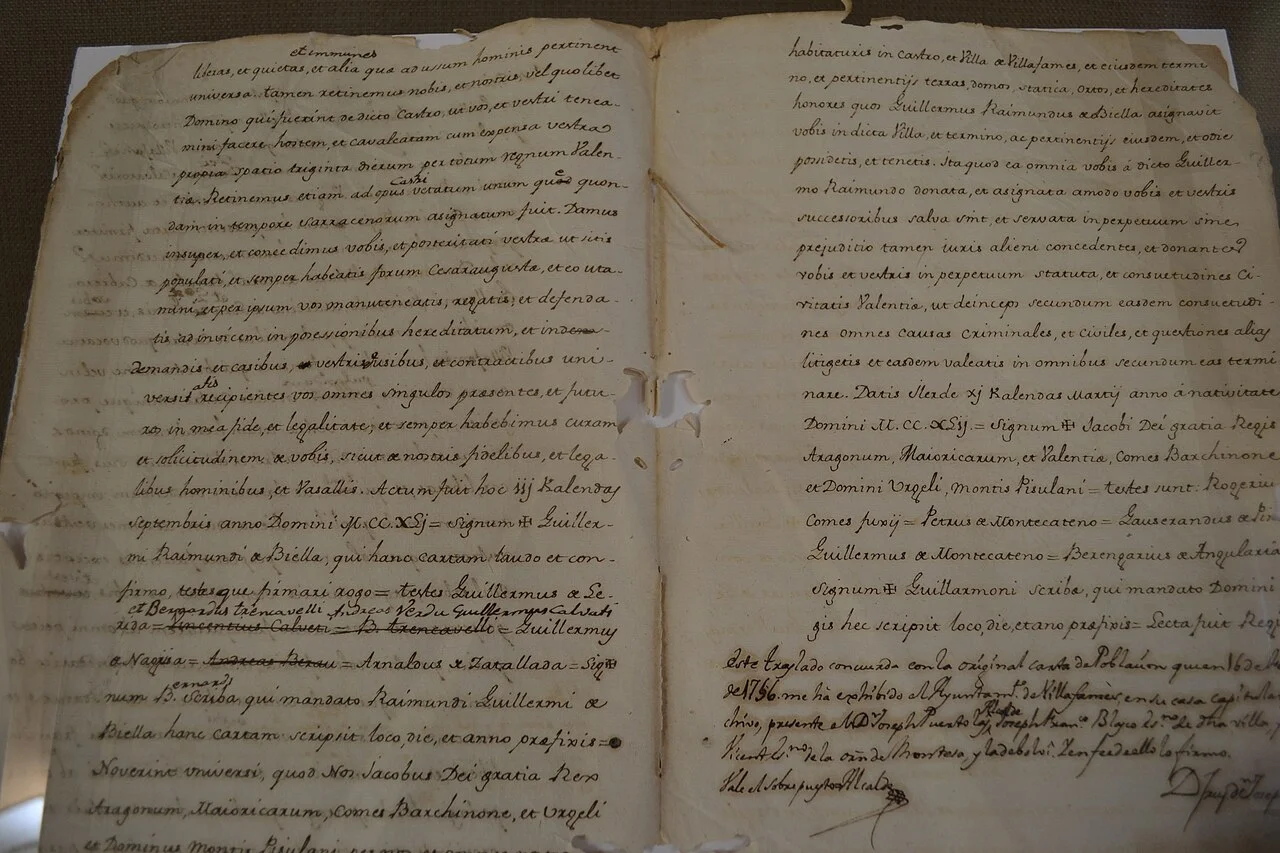 et immunes
liberas, et quietas, et alia qua ad usum hominis pertinent
universa. tamen retinemus nobis, et nostris, vel quolibet
Domino qui fuerint de dicto Castro, ut vos, et vestri tenea-
mini facere hostem, et cavalcatam cum expensa vestra
propia spatio triginta dierum per totum regnum Valen-
tiæ. Retinemus etiam ad opus Castri vetatum unum quod quon-
dam in tempore sarracenorum asignatum fuit. Damus
insuper, et concedimus vobis, et posteritati vestræ ut sitis
populati, et semper habeatis forum Cesaraugustæ, et eo uta-
mini, et per ipsum vos manuteneatis, regatis, et defenda-
tis ad invicem in posessionibus hereditatum, et in
demandis et casibus, vestris usibus, et contractibus uni-
versis recipientes vos omnes singulos præsentes, et futu-
ros in mea fide, et legalitate; et semper habebimus curam
et solicitudinem de vobis, sicut de nostris fidelibus, et lega-
libus hominibus, et Vasallis. Actum fuit hoc iij Kalendas
septembris anno Domini M. CC. XLj = Signum ✠ Guiller-
mi Raimundi de Biella, qui hanc cartam laudo et con-
firmo, testesque firmari rogo = testes Guillermus de Le-
et Bernardus trencavelli Andreas Verdu Guillermus Calvati
rida = Vincentius Calveti = B. trencavelli = Guillermus
de Nagisa = Andreas Berau = Arnaldus de Zatallada = Sig✠
num Bernardi Scriba, qui mandato Raimundi Guillermi de
Biella hanc cartam scripsit loco, die, et anno præfixis =
Noverint universi, quod Nos Jacobus Dei gratia Rex
Aragonum, Maioricarum, Comes Barchinone, et Urgeli
et Dominus Montis Pisulani
habitaturis in Castro, et Villa de Villafames, et eiusdem termi
no, et pertinentijs terras, domos, statica, ortos, et hereditates
honores quos Guillermus Raimundus de Biella asignavit
vobis in dicta Villa, et termino, ac pertinentijs eiusdem, et odie
posidetis, et tenetis. Ita quod ea omnia vobis á dicto Guiller-
mo Raimundo donata, et asignata amodo vobis et vestris
successoribus salva sint, et servata in perpetuum sine
prejuditio tamen iuris alieni concedentes, et donantes
vobis et vestris in perpetuum statuta, et consuetudines Ci-
vitatis Valentiæ, ut deinceps secundum easdem consuetudi-
nes omnes causas Criminales, et Civiles, et questiones alias
litigetis et easdem valeatis in omnibus secundum eas termi
nare. Datis Ilerde xj Kalendas Martij anno á nativitate
Domini M. CC. XLij = Signum ✠ Jacobi Dei gratia Regis
Aragonum, Maioricarum, et Valentiæ, Comes Barchinone
et Domini Urgeli, Montis Pisulani = testes sunt. Rogerius
Comes fuxij = Petrus de Montecateno = Gauserandus de Pin
Guillermus de Montecateno = Berengarius de Angularia
Signum ✠ Guillarmoni scribæ, qui mandato Domini
gis hec scripsit loco, die, et ano præfixis = Lecta fuit Regi
Este traslado concuerda con la original carta de Poblacion que en 16 de
de 1756. me há exhibido el Ayuntamto. de Villafamés en su casa capitula
chivo, presente el Dr. Joseph Puerto Alcalde, Joseph Franco. Blasco Esno. de dha villa,
Vicent Esno. de la orñ de Montesa, y la debolvi. Y en fee de ello lo firmo.
Vale el sobrepuesto Alcalde